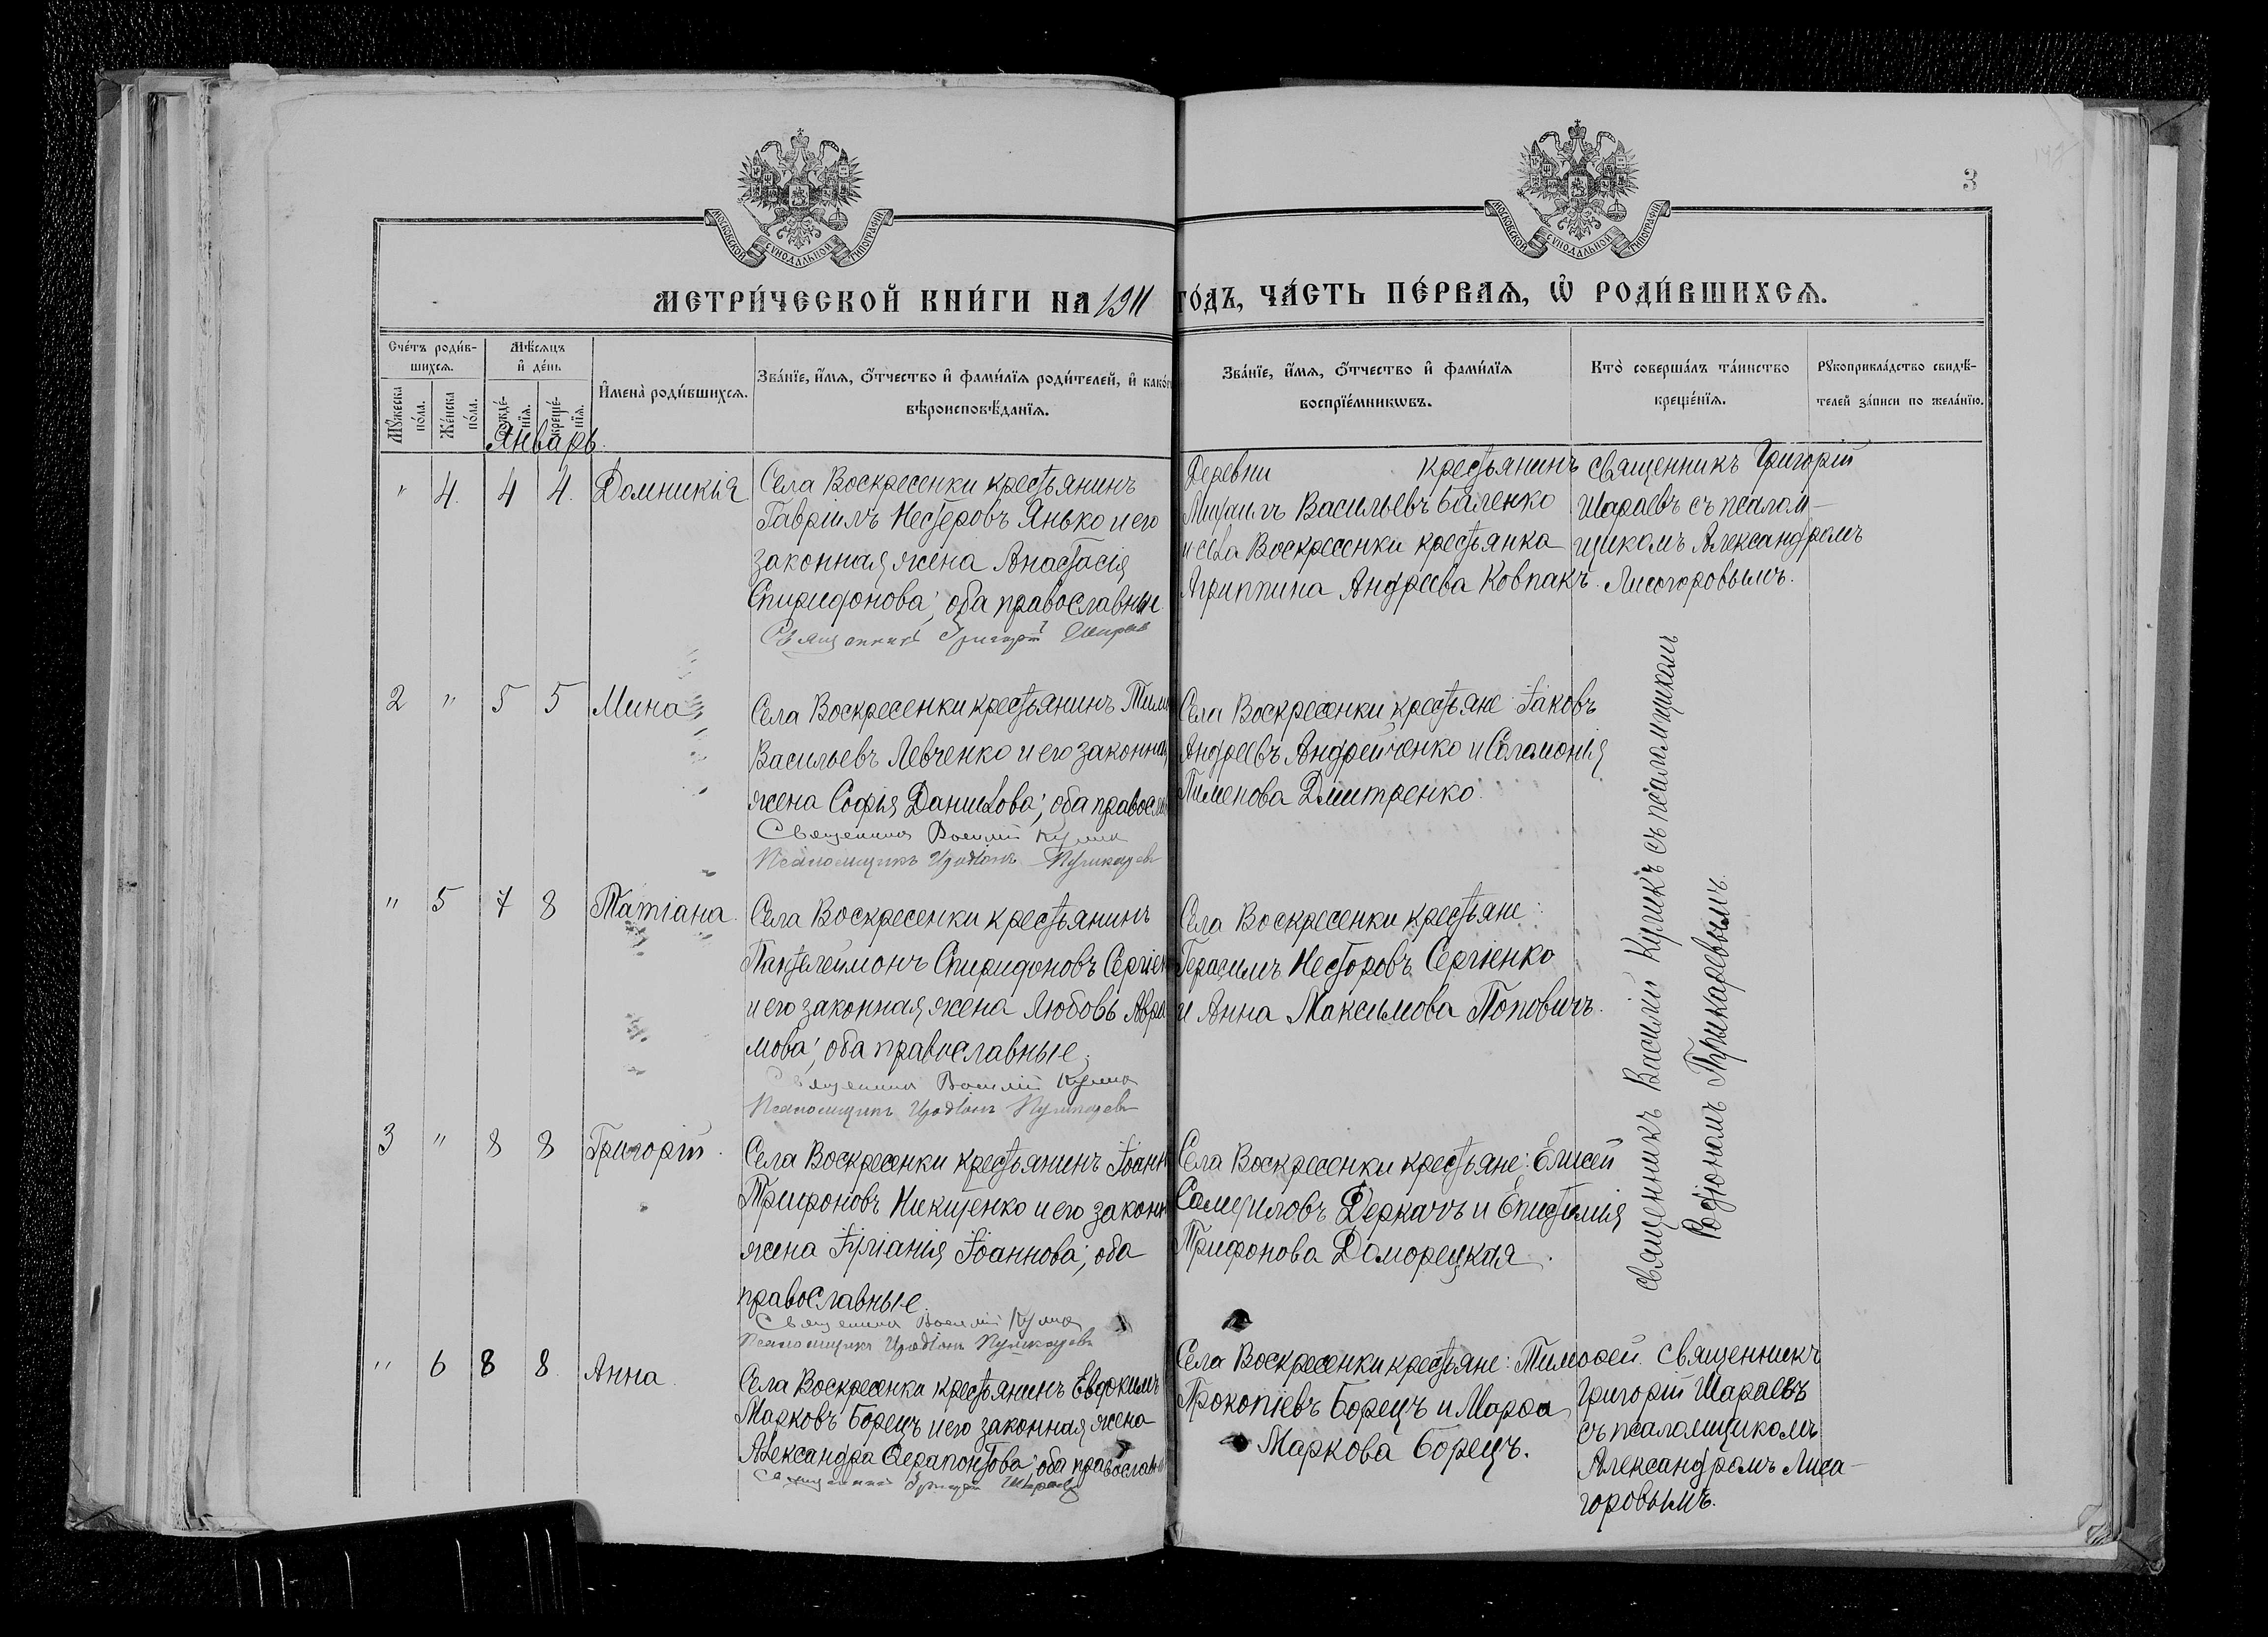 МОСКОВСКОЙ СѴНОДАЛЬНОЙ ТИПОГРАФІИ
МОСКОВСКОЙ СѴНОДАЛЬНОЙ ТИПОГРАФІИ
3
МЕТРИ́ЧЕСКОЙ КНИ́ГИ НА 1911 ГО́ДЪ, ЧА́СТЬ ПЕ́РВАѦ, Ѡ҆ РОДИ́ВШИХСѦ.
Сче́тъ роди́в-
шихсѧ.
Мꙋ́жеска
по́ла.
Же́нска
по́ла.
Мѣ́сѧцъ
и҆ де́нь
рожде́-
нїѧ.
креще́-
нїѧ.
И҆мена̀ роди́вшихсѧ.
Зва́нїе, и҆́мѧ, ѻ҆́тчество и҆ фами́лїѧ роди́телей, и҆ како́г
вѣроисповѣ́данїѧ.
Зва́нїе, и҆́мѧ, ѻ҆́тчество и҆ фами́лїѧ
воспрїе́мникѡвъ.
Кто̀ соверша́лъ та́инство
креще́нїѧ.
Рꙋкоприкла́дство свидѣ́-
телей за́писи по жела́нїю.
Январь.
" 4. 4 4. Домникія
Села Воскресенки крестьянинъ
Гавриилъ Нестеровъ Янько и его
законная жена Анастасія
Спиридонова; оба православные.
Священникъ Григорій Шараев
Деревни крестьянинъ
Михаилъ Васильевъ Баленко
и села Воскресенки крестьянка
Агриппина Андреева Ковпакъ.
Священникъ Григорій
Шараевъ съ псалом-
щикомъ Александромъ
Лисогоровымъ.
2 " 5 5 Мина
Села Воскресенки крестьянинъ Тим
Васильевъ Левченко и его законная
жена Софія Данилова; оба правосл
Священникъ Василій Кулик
Псаломщикъ
Села Воскресенки крестьяне Іаковъ
Андреевъ Андрейченко и Соломонія
Пименова Дмитренко.
" 5 7 8 Татіана.
Села Воскресенки крестьянинъ
Пантелеймонъ Спиридоновъ Сергіен
и его законная жена Любовь Авра
мова; оба православные.
Священникъ Василій Кулик
Псаломщикъ
Села Воскресенки крестьяне:
Герасимъ Несторовъ Сергіенко
и Анна Максимова Поповичъ.
3 " 8 8 Григорій.
Села Воскресенки крестьянинъ Іоанн
Трифоновъ Никитенко и его законн
жена Іуліанія Іоаннова; оба
православные.
Священникъ Василій Кулик
Псаломщикъ
Села Воскресенки крестьяне: Елисей
Самуиловъ Деркачъ и Епистимія
Трифонова Доморецкая.
Священникъ Василій Куликъ съ псаломщикомъ
Родіономъ Пушкаревымъ.
" 6 8 8. Анна.
Села Воскресенки крестьянинъ Евдокимъ
Марковъ Борецъ и его законная жена
Александра Ферапонтова; оба православн
Священникъ Григорій Шараевъ
Села Воскресенки крестьяне: Тимофей
Прокопіевъ Борецъ и Марфа
Маркова Борецъ.
Священникъ
Григорій Шараевъ
съ псаломщикомъ
Александромъ Лиса-
горовымъ.